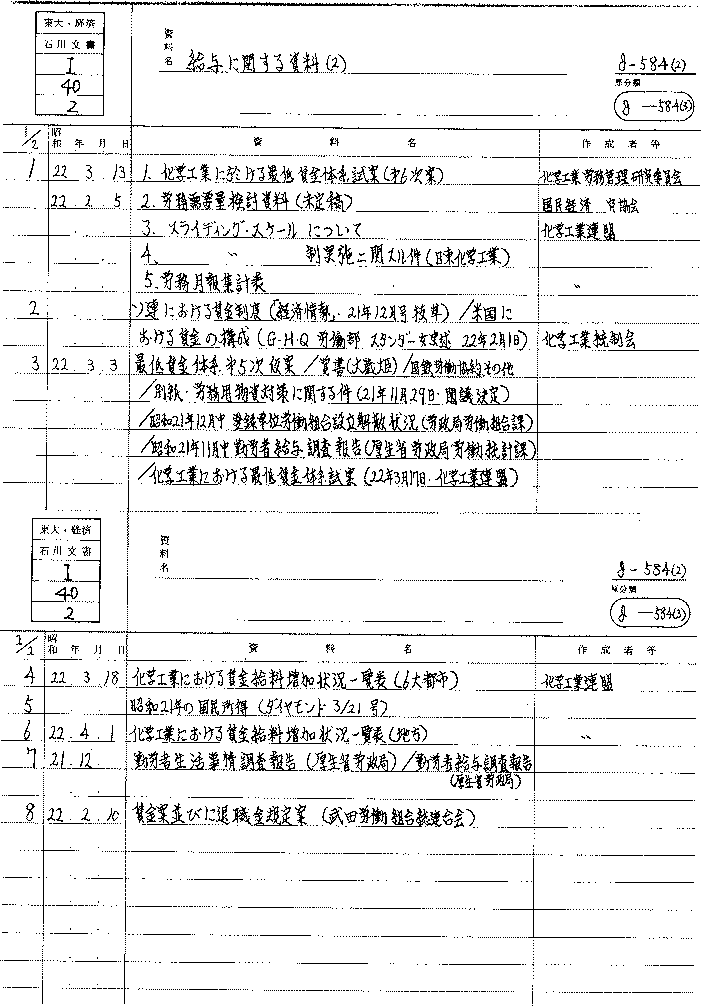 東大・経済
石川文書
I
40
2
資料名
給与に関する資料(2)
g-584(2)
原分類
g-584(3)
1/2 昭和 年 月 日 資料名 作成者等
1 22 3 13 1. 化学工業に於ける最低賃金体系試案(第6次案) 化学工業労務管理研究委員会
22 2 5 2. 労務需要量検討資料(未定稿) 国民経済 協会
3. スライディング・スケールについて 化学工業連盟
4. 〃 制実施ニ関スル件(日東化学工業)
5. 労務月報集計表 〃
2 ソ連における賃金制度(「経済情報」・21年12月号抜萃)/米国に
おける賃金の構成(G・H・Q 労働部 スタンダー女史述 22年2月1日) 化学工業統制会
3 22 3 3 最低賃金体系第5次仮案/覚書(大蔵大臣)/国鉄労働協約その他
/別紙・労務用物資対策に関する件(21年11月29日・閣議決定)
/昭和21年12月中 登録単位労働組合設立解散状況(労政局労働組合課)
/昭和21年11月中勤労者給与調査報告(厚生省労政局労働統計課)
/化学工業における最低賃金体系試案(22年3月17日・化学工業連盟)
東大・経済
石川文書
I
40
2
資料名
g-584(2)
原分類
g-584(3)
2/2 昭和 年 月 日 資料名 作成者等
4 22 3 18 化学工業における賃金給料増加状況一覧表(6大都市) 化学工業連盟
5 昭和21年の国民所得(ダイヤモンド 3/21号)
6 22 4 1 化学工業における賃金給料増加状況一覧表(地方) 〃
7 21 12 勤労者生活事情調査報告(厚生省労政局)/勤労者給与調査報告
(厚生省労政局)
8 22 2 10 賃金案並びに退職金規定案(武田労働組合統連合会)